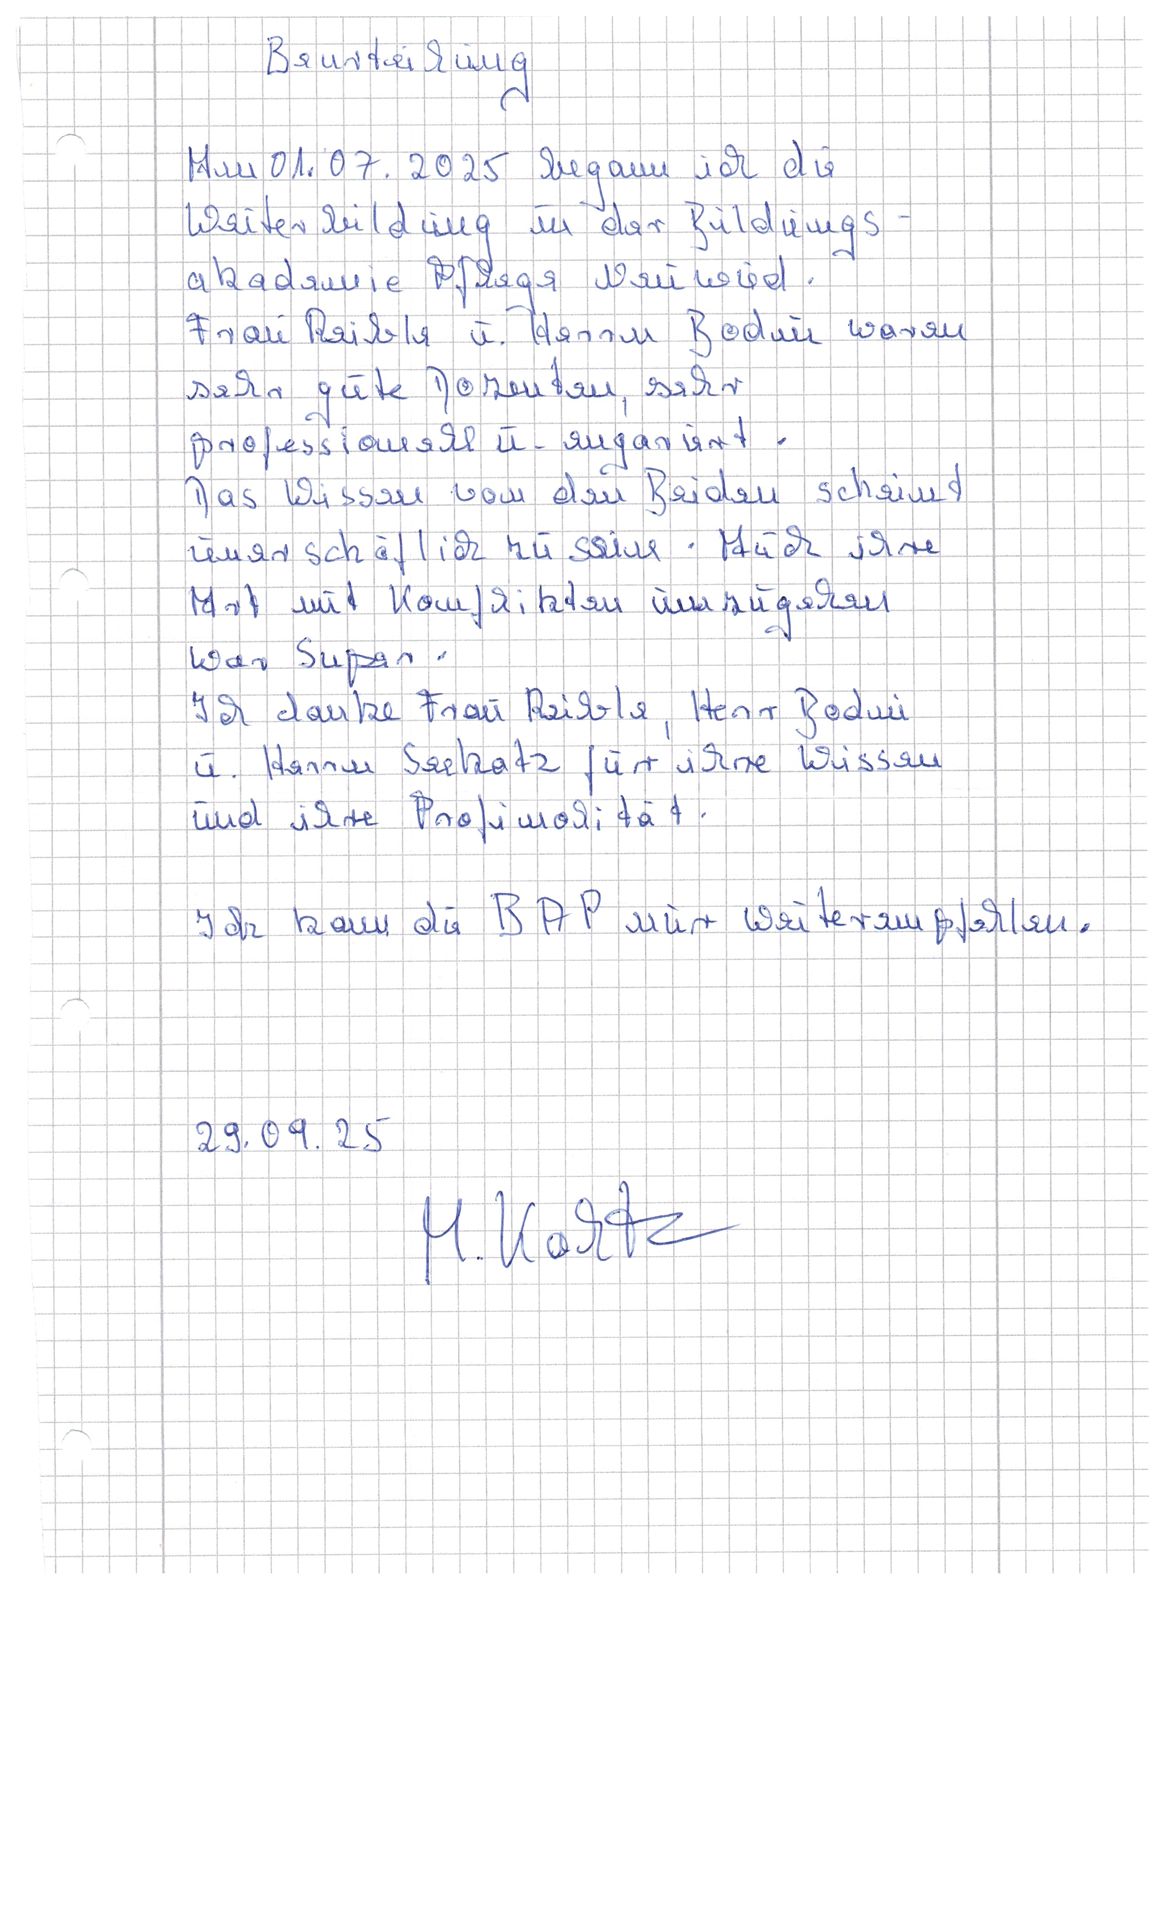 Beurteilung
Am 01.07.2025 begann ich die
Weiterbildung in der Bildungs-
akademie Pflege Neuwied.
Frau Reible u. Herrn Bodni waren
sehr gute Dozenten, sehr
professionell u. engariert.
Das Wissen von den Beiden scheint
unerschäflich zu sein. Auch ihre
Art mit Konflikten umzugehen
war Super.
Ich danke Frau Reible, Herr Bodni
u. Herrn Seekatz für ihre Wissen
und ihre Profinolität.
Ich kann die BAP nur weiterempfehlen.
29.09.25